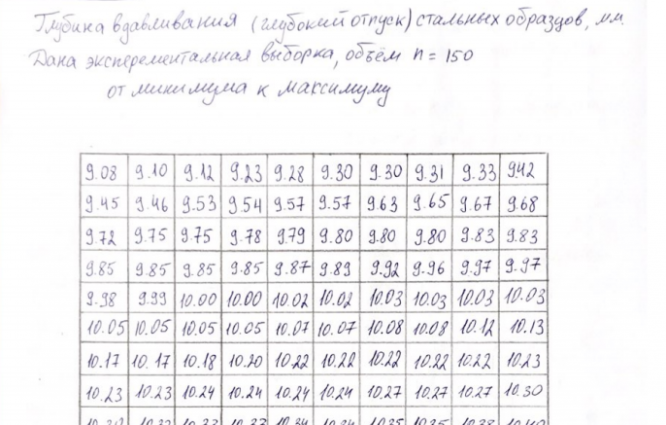 Глубина вдавливания (глубокий отпуск) стальных образцов, мм.
Дана эксперементальная выборка, объём n = 150
от минимума к максимуму
9.08 9.10 9.12 9.23 9.28 9.30 9.30 9.31 9.33 9.42
9.45 9.46 9.53 9.54 9.57 9.57 9.63 9.65 9.67 9.68
9.72 9.75 9.75 9.78 9.79 9.80 9.80 9.80 9.83 9.83
9.85 9.85 9.85 9.85 9.87 9.89 9.92 9.96 9.97 9.97
9.98 9.99 10.00 10.00 10.02 10.02 10.03 10.03 10.03 10.03
10.05 10.05 10.05 10.05 10.07 10.07 10.08 10.08 10.12 10.13
10.17 10.17 10.18 10.20 10.22 10.22 10.22 10.22 10.22 10.23
10.23 10.23 10.24 10.24 10.24 10.24 10.27 10.27 10.27 10.30